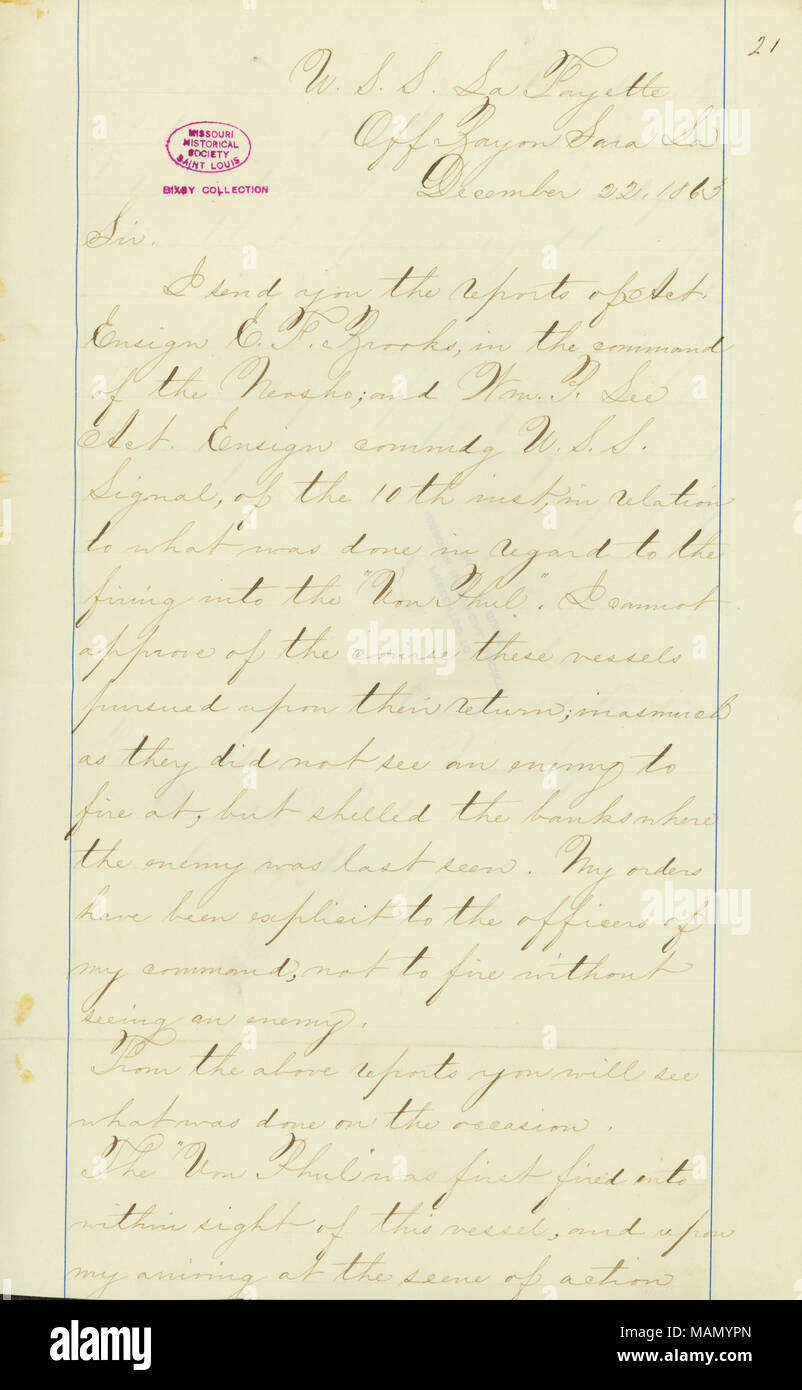 21
U. S. S. La Fayette
Off Bayou Sara La
December 22, 1863
MISSOURI
HISTORICAL
SOCIETY
SAINT LOUIS
BIXBY COLLECTION
Sir.
I send you the reports of Act.
Ensign E. F. Brooks, in the command
of the Neosho; and Wm. P. Lee
Act. Ensign commdg U. S. S.
Signal, of the 10th inst, in relation
to what was done in regard to the
firing into the "Von Phul". I cannot
approve of the course these vessels
pursued upon their return; inasmuch
as they did not see an enemy to
fire at, but shelled the banks where
the enemy was last seen. My orders
have been explicit to the officers of
my command, not to fire without
seeing an enemy.
From the above reports you will see
what was done on the occasion.
The "Von Phul" was first fired into
within sight of this vessel, and upon
my arriving at the scene of action
alamy
Image ID: MAMYPN
www.alamy.com